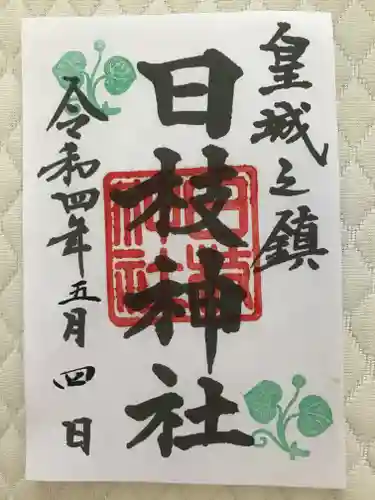 皇城之鎮
日枝神社
令和四年五月四日